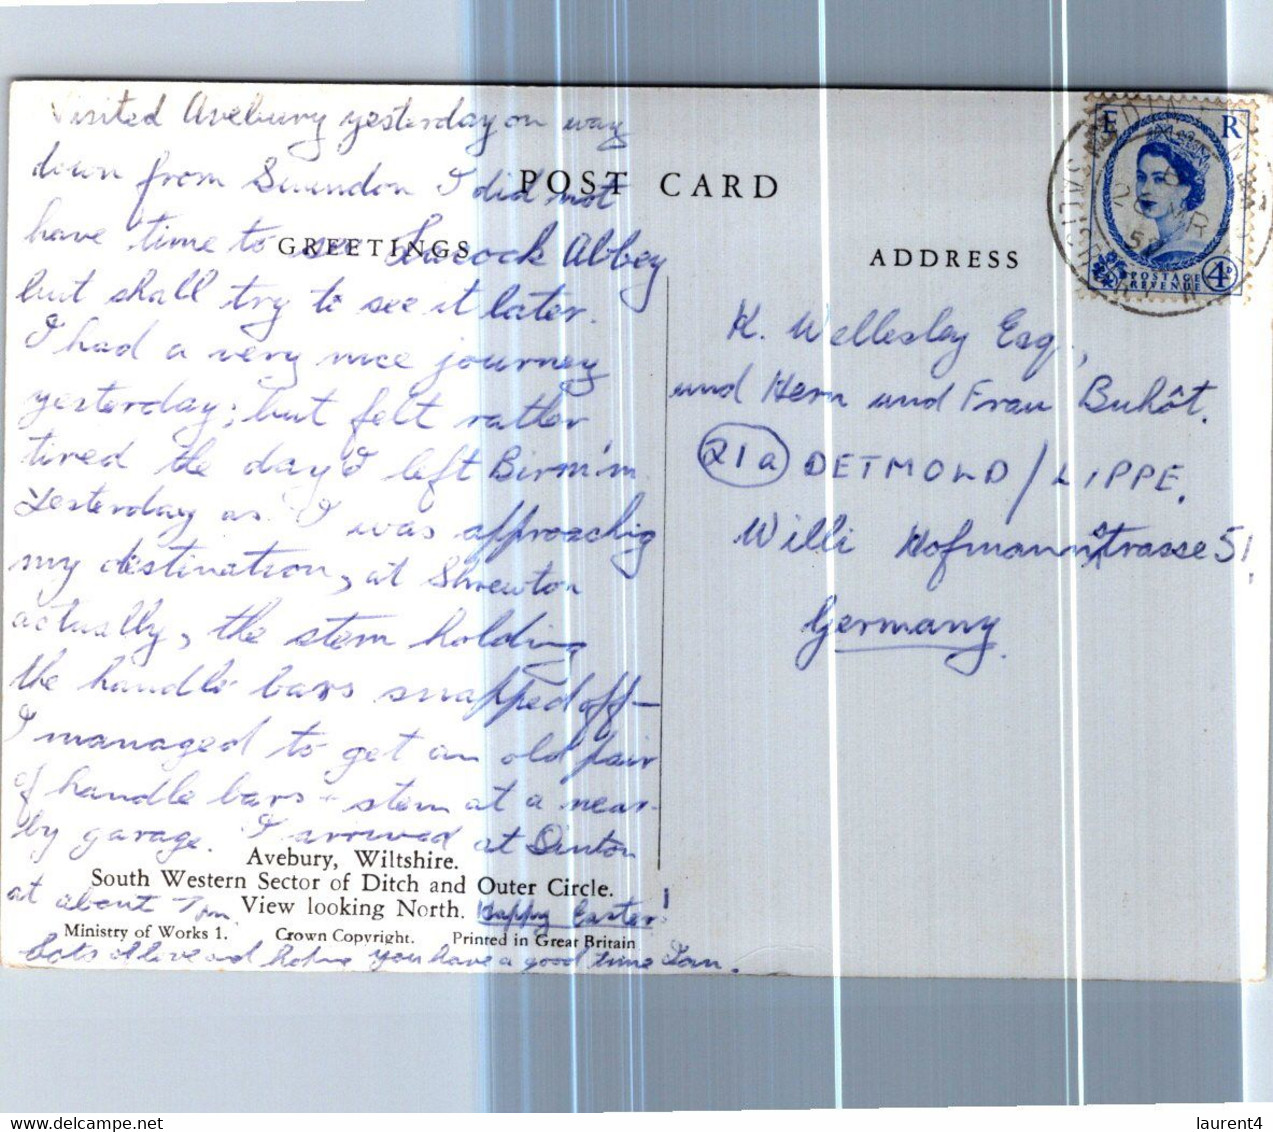 Visited Avebury yesterday on way
down from Swindon I did not
POST CARD
have time to see Lacock Abbey
GREETINGS
but shall try to see it later.
I had a very nice journey
yesterday; but felt rather
tired the day I left Birm'm.
Yesterday as I was approachig
my destination, at Shrewton
actually, the stem holding
the handle bars snapped off—
I managed to get an old pair
of handle bars + stem at a near-
by garage. I arrived at Dinton
Avebury, Wiltshire.
South Western Sector of Ditch and Outer Circle.
at about 7pm
View looking North.
Happy Easter!
Ministry of Works 1. Crown Copyright. Printed in Great Britain
Lots of love and hoping you have a good time Ian.
ADDRESS
E R
POSTAGE
REVENUE
4D
K. Wellesley Esq.,
und Herrn und Frau Buhôt.
21a DETMOLD / LIPPE.
Willi Hofmannstrasse 51,
Germany.
laurent4